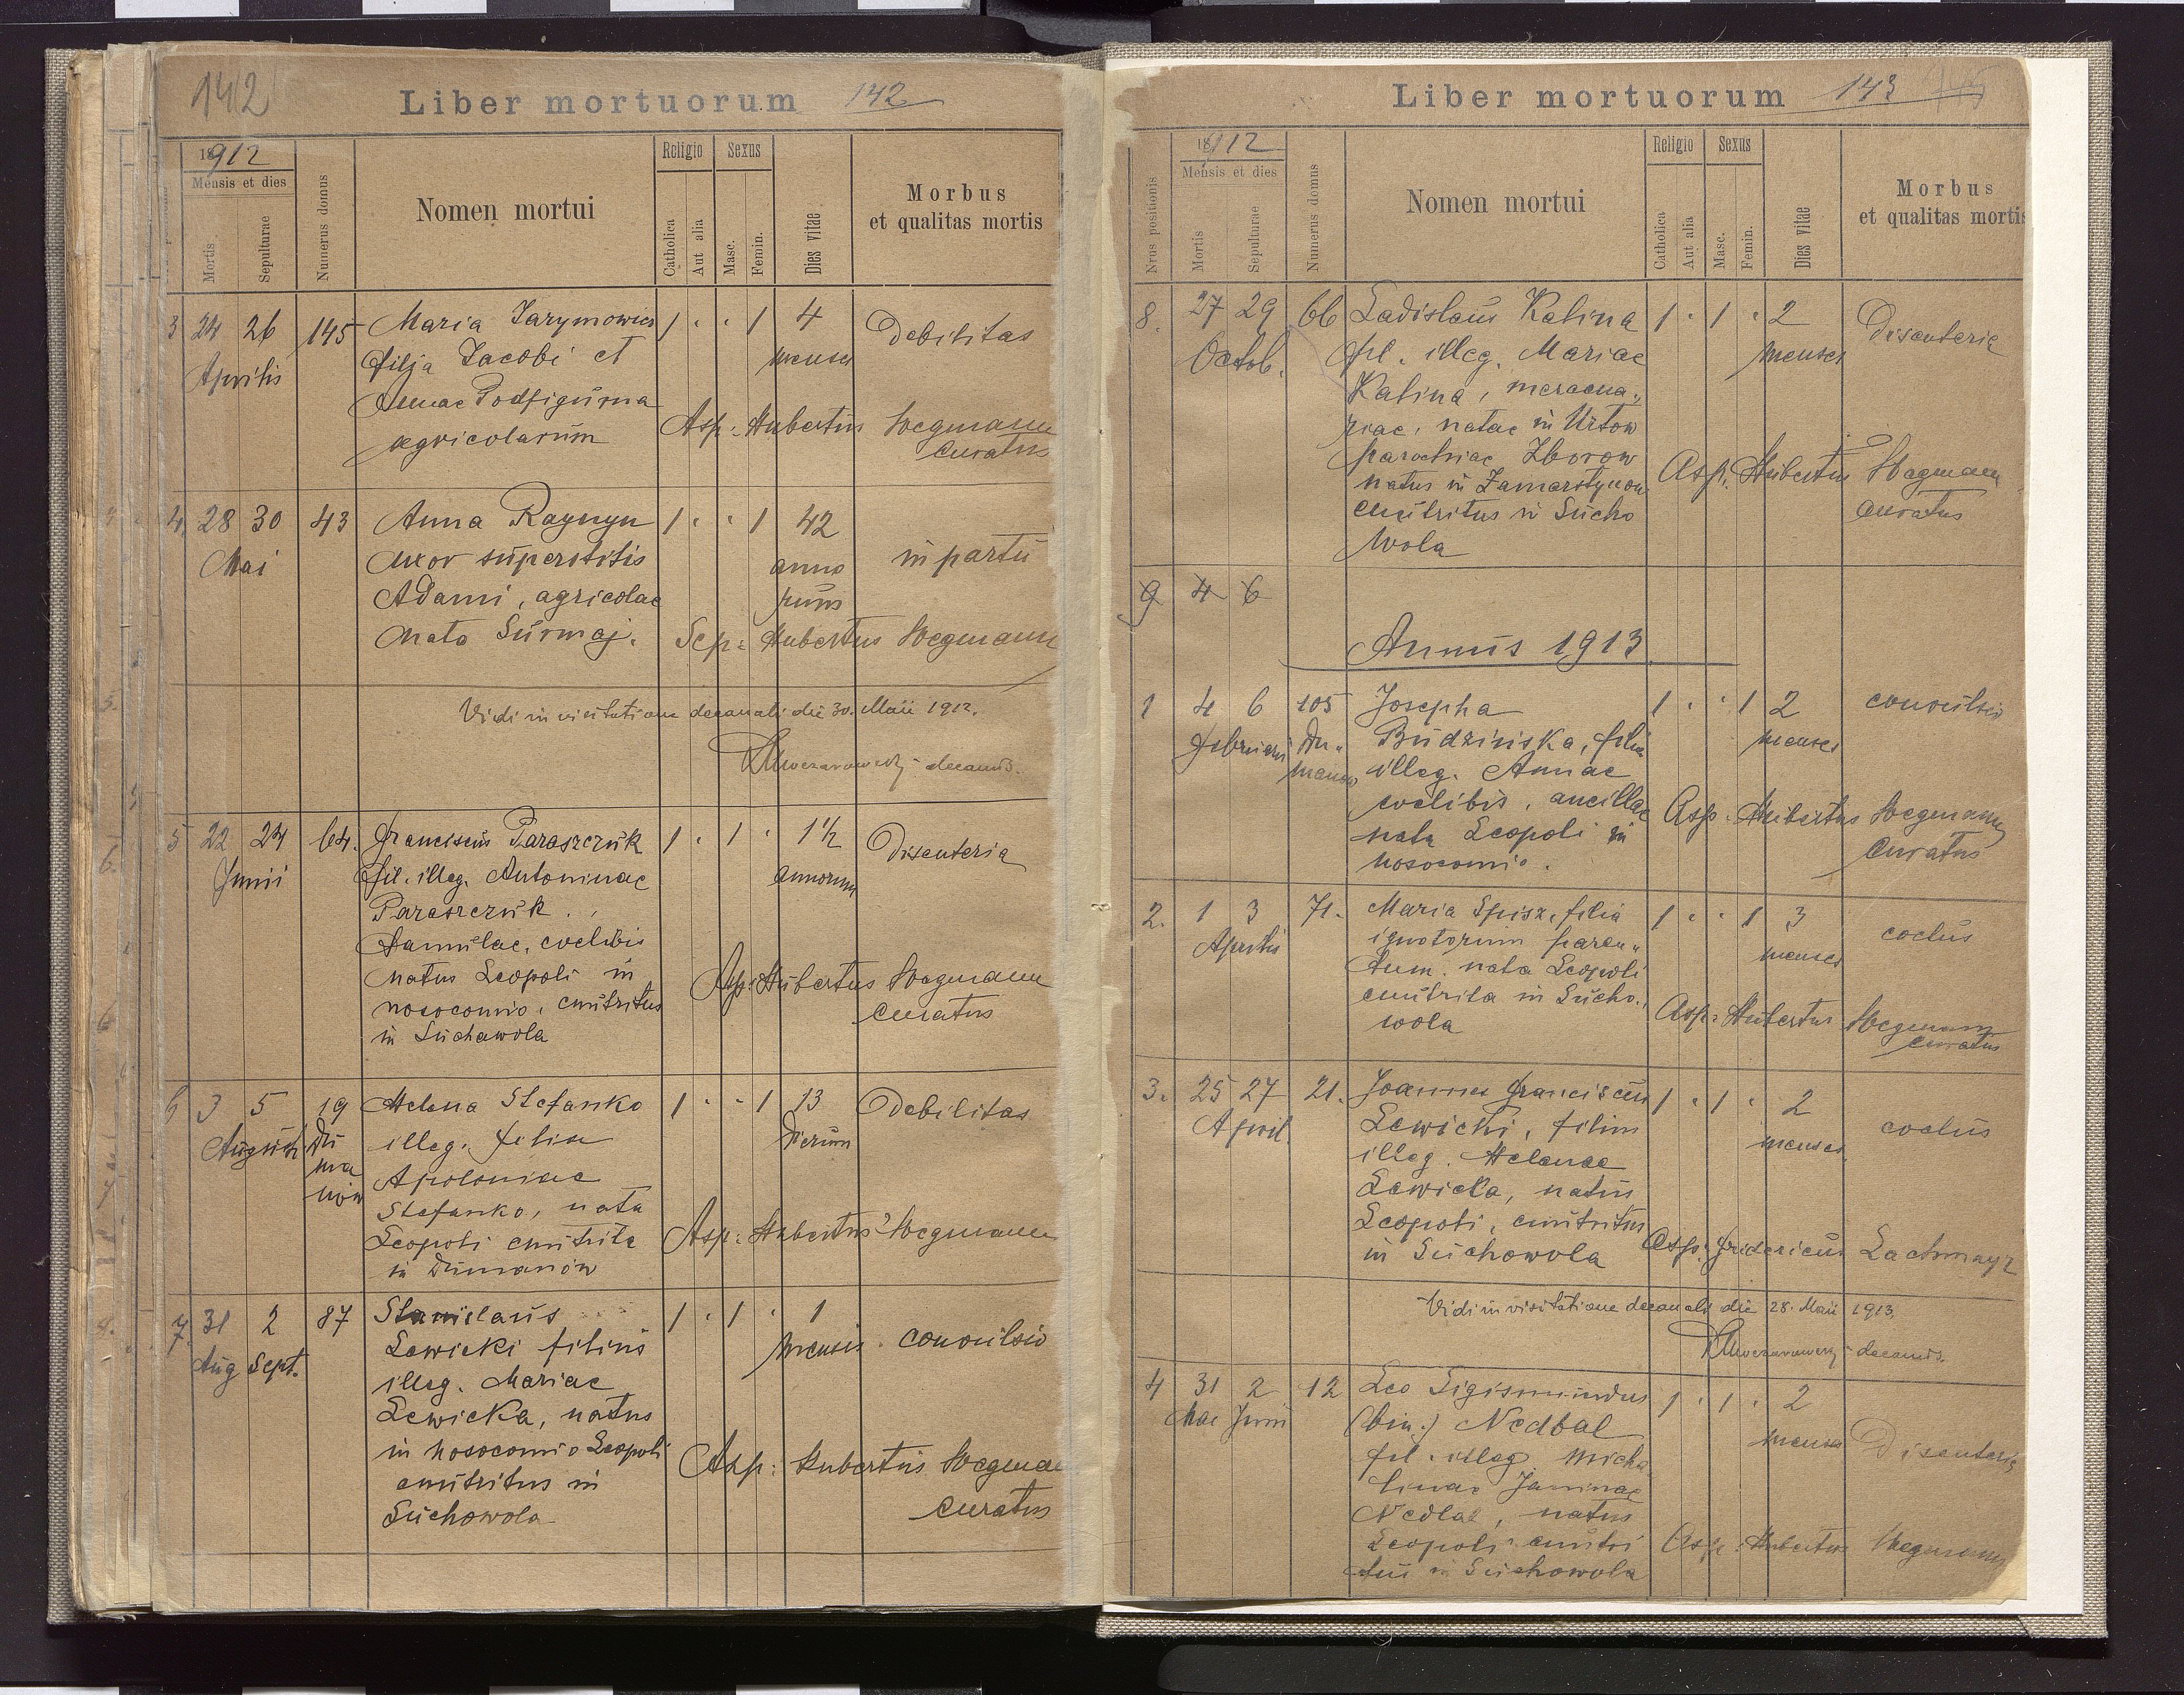 142
Liber mortuorum 142
1912
Mensis et dies
Mortis
Sepulturae
Numerus domus
Nomen mortui
Religio
Catholica
Aut alia
Sexus
Masc.
Femin.
Dies vitae
Morbus
et qualitas mortis
3 24 26 145 Maria Jarymowicz 1 · · 1 4 Debilitas
Aprilis filja Jacobi et menses
Annae Podfigurna
agricolarum Asp: Hubertus Wegmann
curatus
4. 28 30 43 Anna 1 · · 1 42 in partu
Mai uxor superstitis anno
Adami, agricolae rum
nata Surmaj. Sep: Hubertus Wegmann
Vidi in visitatione decanali die 30. Maii 1912.
decanus.
5 22 24 64. Franciscus Paraszczuk 1 · 1 · 1½ Disenteria
Junii fil. illeg. Antoninae annorum
Paraszczuk
famulae, coelibis
natus Leopoli in Asp: Hubertus Wegmann
nosocomio, enutritus curatus
in Suchawola
6 3 5 19 Helena Stefanko 1 · · 1 13 Debilitas
Augusti Du illeg. filia dierum
ma Apoloniae
nów Stefanko, nata
Leopoli enutrita Asp: Hubertus Wegmann
in Dumanów
7. 31 2 87 Stanislaus 1 · 1 · 1
Aug Sept. Lewicki filius mensis convulsio
illeg. Mariae
Lewicka, natus
in nosocomio Leopoli Asp: Hubertus Wegmann
enutritus in curatus
Suchowola
Liber mortuorum 143
1912
Mensis et dies
Nrus positionis
Mortis
Sepulturae
Numerus domus
Nomen mortui
Religio
Catholica
Aut alia
Sexus
Masc.
Femin.
Dies vitae
Morbus
et qualitas mortis
8. 27 29 66 Ladislaus Kalina 1 · 1 · 2 Disenteria
Octob. fil. illeg. Mariae menses
Kalina, mercena-
riae, natae in Urtow
parochiae Zborow Asp. Hubertus Wegmann
natus in Zamarstynow curatus
enutritus in Sucho
wola
9 4 6
Annus 1913
1 4 6 105 Josepha 1 · · 1 2 convulsio
Februarii Du- Budzinska, filia menses
manow illeg. Annae
coelibis, ancillae Asp. Hubertus Wegmann
nata Leopoli in curatus
nosocomio.
2. 1 3 71. Maria Spisz, filia 1 · · 1 3 coclus
Aprilis ignotorum paren- menses
tum. nata Leopoli
enutrita in Sucho- Asp: Hubertus Wegmann
wola curatus
3. 25 27 21. Joannes Franciscus 1 · 1 · 2 coclus
April. Lewicki, filius menses
illeg. Helenae
Lewicka, natus
Leopoli, enutritus
in Suchowola Asp. Fridericus Lachmayr
Vidi in visitatione decanali die 28. Maii 1913.
decanus.
4 31 2 12 Leo Sigismundus 1 · 1 · 2 Disenteria
Mai Junii (bin.) Nedbal menses
fil. illeg. Micha
linae Janinae
Nedbal, natus
Leopoli enutri Asp: Hubertus Wegmann
tus in Suchowola